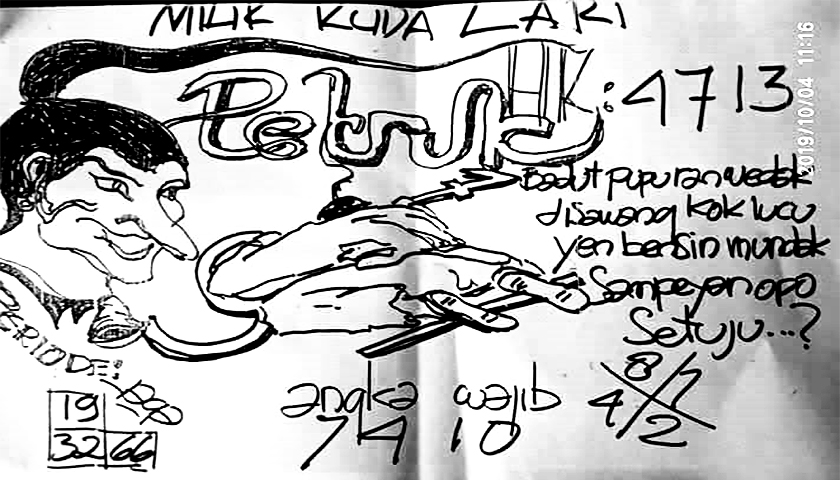 MILIK KUDA LAKI
Petruk
HK: 4713
Badut pupuran wedak
disawang kok lucu
yen bensin mundak
Sampeyan opo
Setuju...?
PERIODE:
19
32 66
angka wajib
74 10
8 7
4 2
2019/10/04 11:16